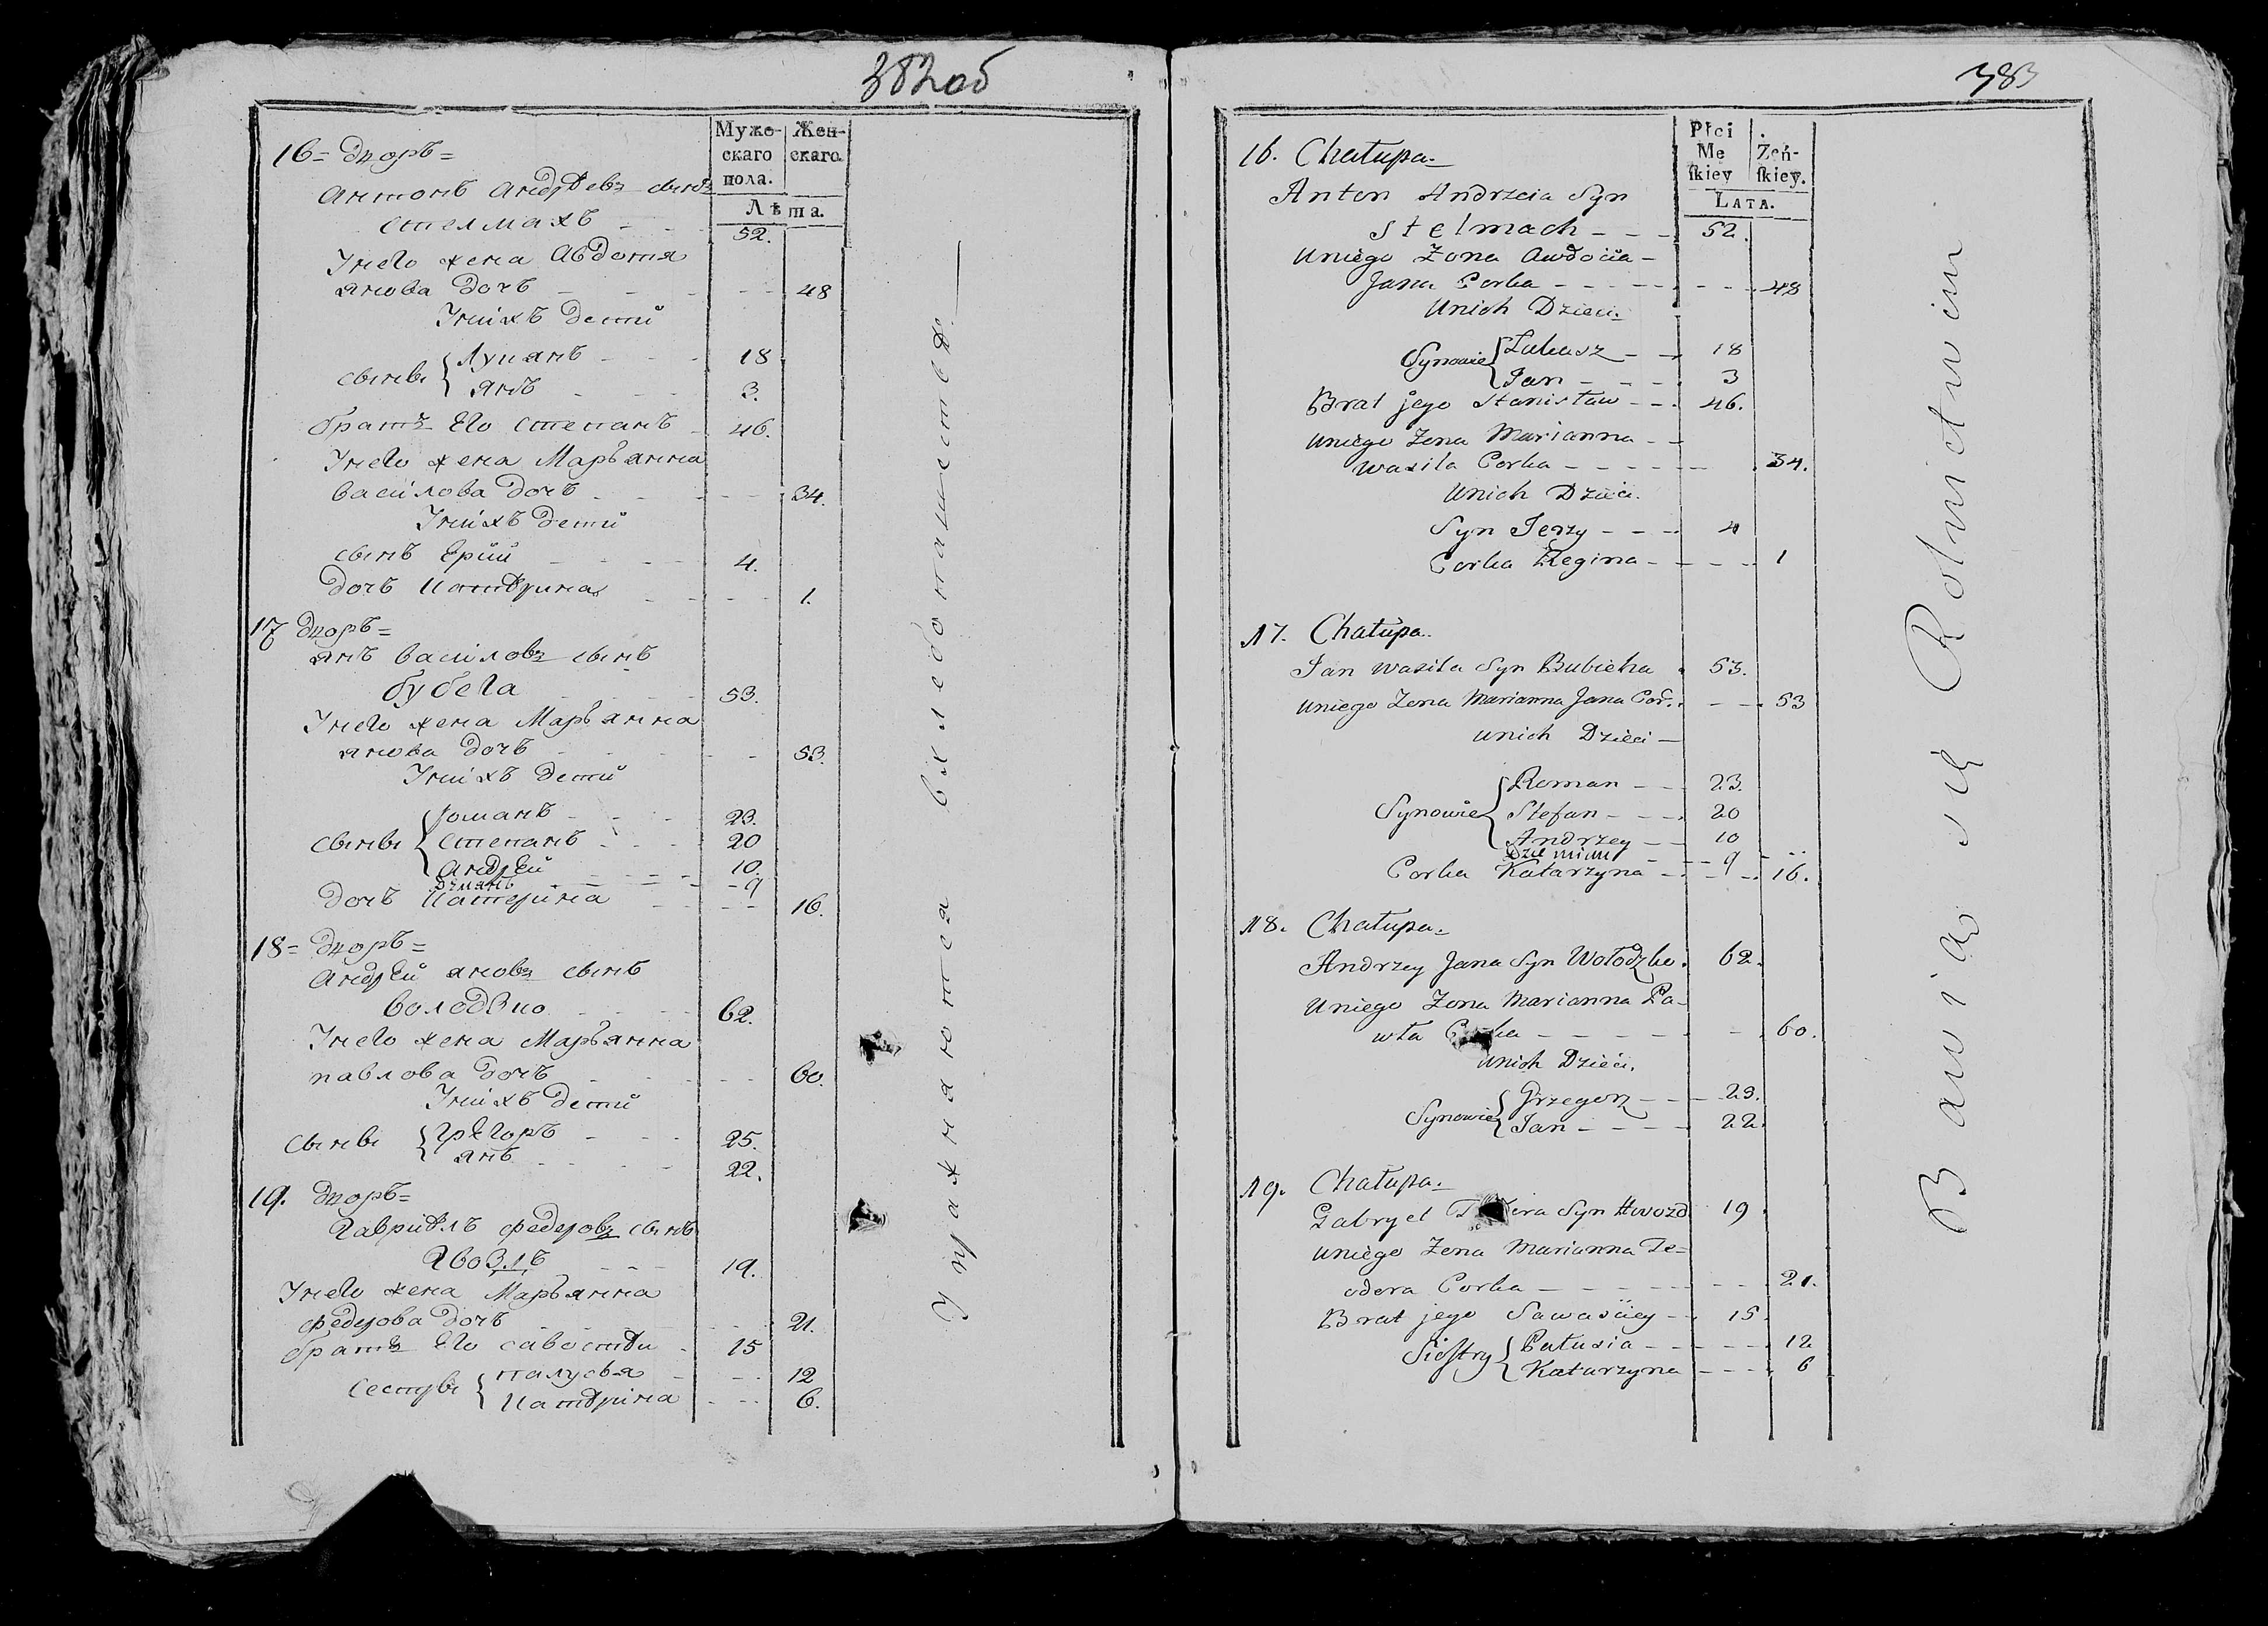 382об
Муже-
скаго
пола.
Жен-
скаго.
Лѣта.
16= дворъ=
Антонъ Андрѣевъ сынъ
Стелмахъ - - 52.
У него жена Авдотя
Янова дочь - - - 48
У нихъ дети
сыны { Лукянъ - - 18
Янъ - - 3.
братъ Его Степанъ - 46.
У него жена Марьянна
василова дочь - - - 34.
У нихъ дети
сынъ Ерий - - 4.
дочь Катѣрина - - - 1.
17 дворъ=
Янъ василовъ сынъ
бубега - - 53.
У него жена Марьянна
Янова дочь - - - 53.
У нихъ дети
сыны { Романъ - - 23.
Степанъ - - 20
Андрей - - 10.
- - - 9
дочь Катерина - - - 16.
18= дворъ=
Андрей Яновъ сынъ
володзко - - 62.
У него жена Марьянна
павлова дочь - - - 60.
У нихъ дети
сыны { Грѣгоръ - - 25.
Янъ - - 22.
19. дворъ=
Гавриѣлъ федеровъ сынъ
- - 19.
У него жена Марьянна
федерова дочь - - - 21.
братъ Его савостѣй - 15
сестры { палуся - - - 12
Катѣрина - - - 6.
Упражняются в хлебопашестве.
383
Płci
Mę
skiey
Żeń-
skiey.
LATA.
16. Chałupa.=
Anton Andrzeia Syn
Stelmach - - - 52.
u niego Żona Awdocia -
Jana Corka - - - - 48
u nich Dzieci.
Synowie { Łukasz - - 18
Jan - - - 3
Brat jego Stanisław - - 46.
u niego Zona Marianna - -
Wasila Corka - - - - 34.
u nich Dzieci.
Syn Jerzy - - - 4
Corka Regina - - - - 1
17. Chałupa..
Jan Wasila Syn Bubieha . 53.
u niego Zona Marianna Jana Cor. - - 53
u nich Dzieci -
Synowie { Roman - - 23.
Stefan - - - 20
Andrzey - - 10
- - 9
Corka Katarzyna - - - 16.
18. Chałupa.=
Andrzey Jana Syn Wołodzko. 62.
u niego Zona Marianna Pa-
wła Corka - - - - - 60.
u nich Dzieci.
Synowie { Grzegorz - - 23.
Jan - - - - 22.
19. Chałupa.=
Gabryel Syn Hwozd 19.
u niego Zona Marianna Te=
odora Corka - - - - - 21.
Brat jego Sawaściey - - 15.
Siostry { Pałusia - - - - 12
Katarzyna - - - 6
Bawią się Rolnictwem